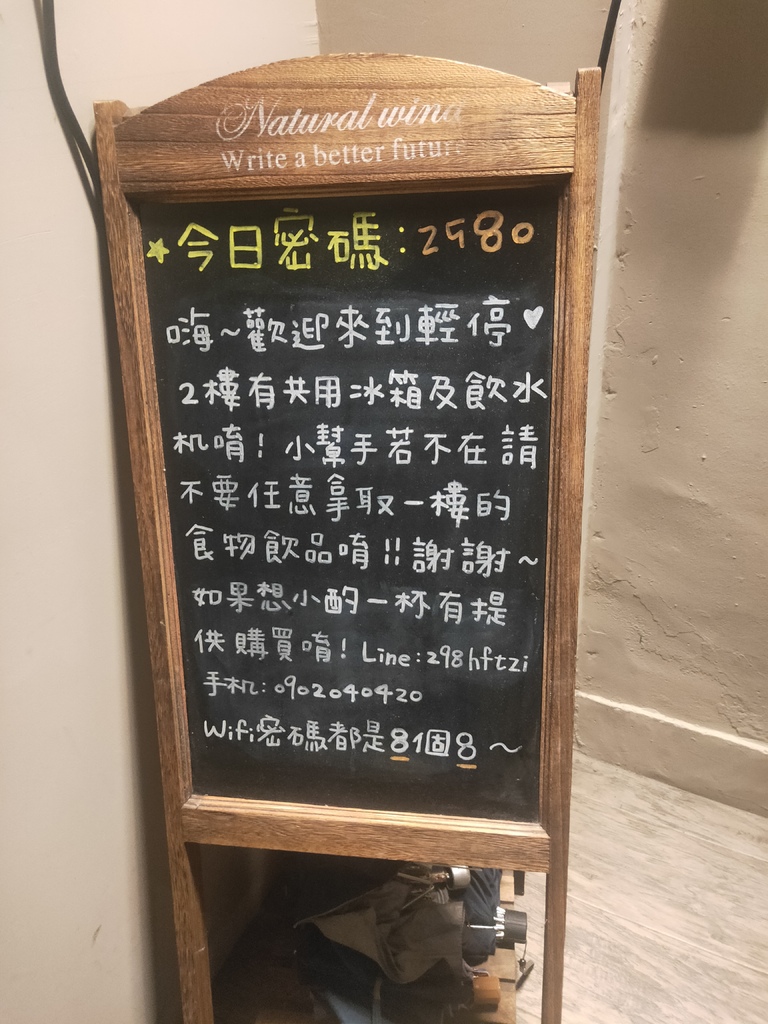 Natural wind
Write a better future
★今日密碼:2980
嗨~歡迎來到輕停♥
2樓有共用冰箱及飲水
机唷!小幫手若不在請
不要任意拿取一樓的
食物飲品唷!!謝謝~
如果想小酌一杯有提
供購買唷!Line:298hftzi
手机:0902040420
Wifi密碼都是8個8~